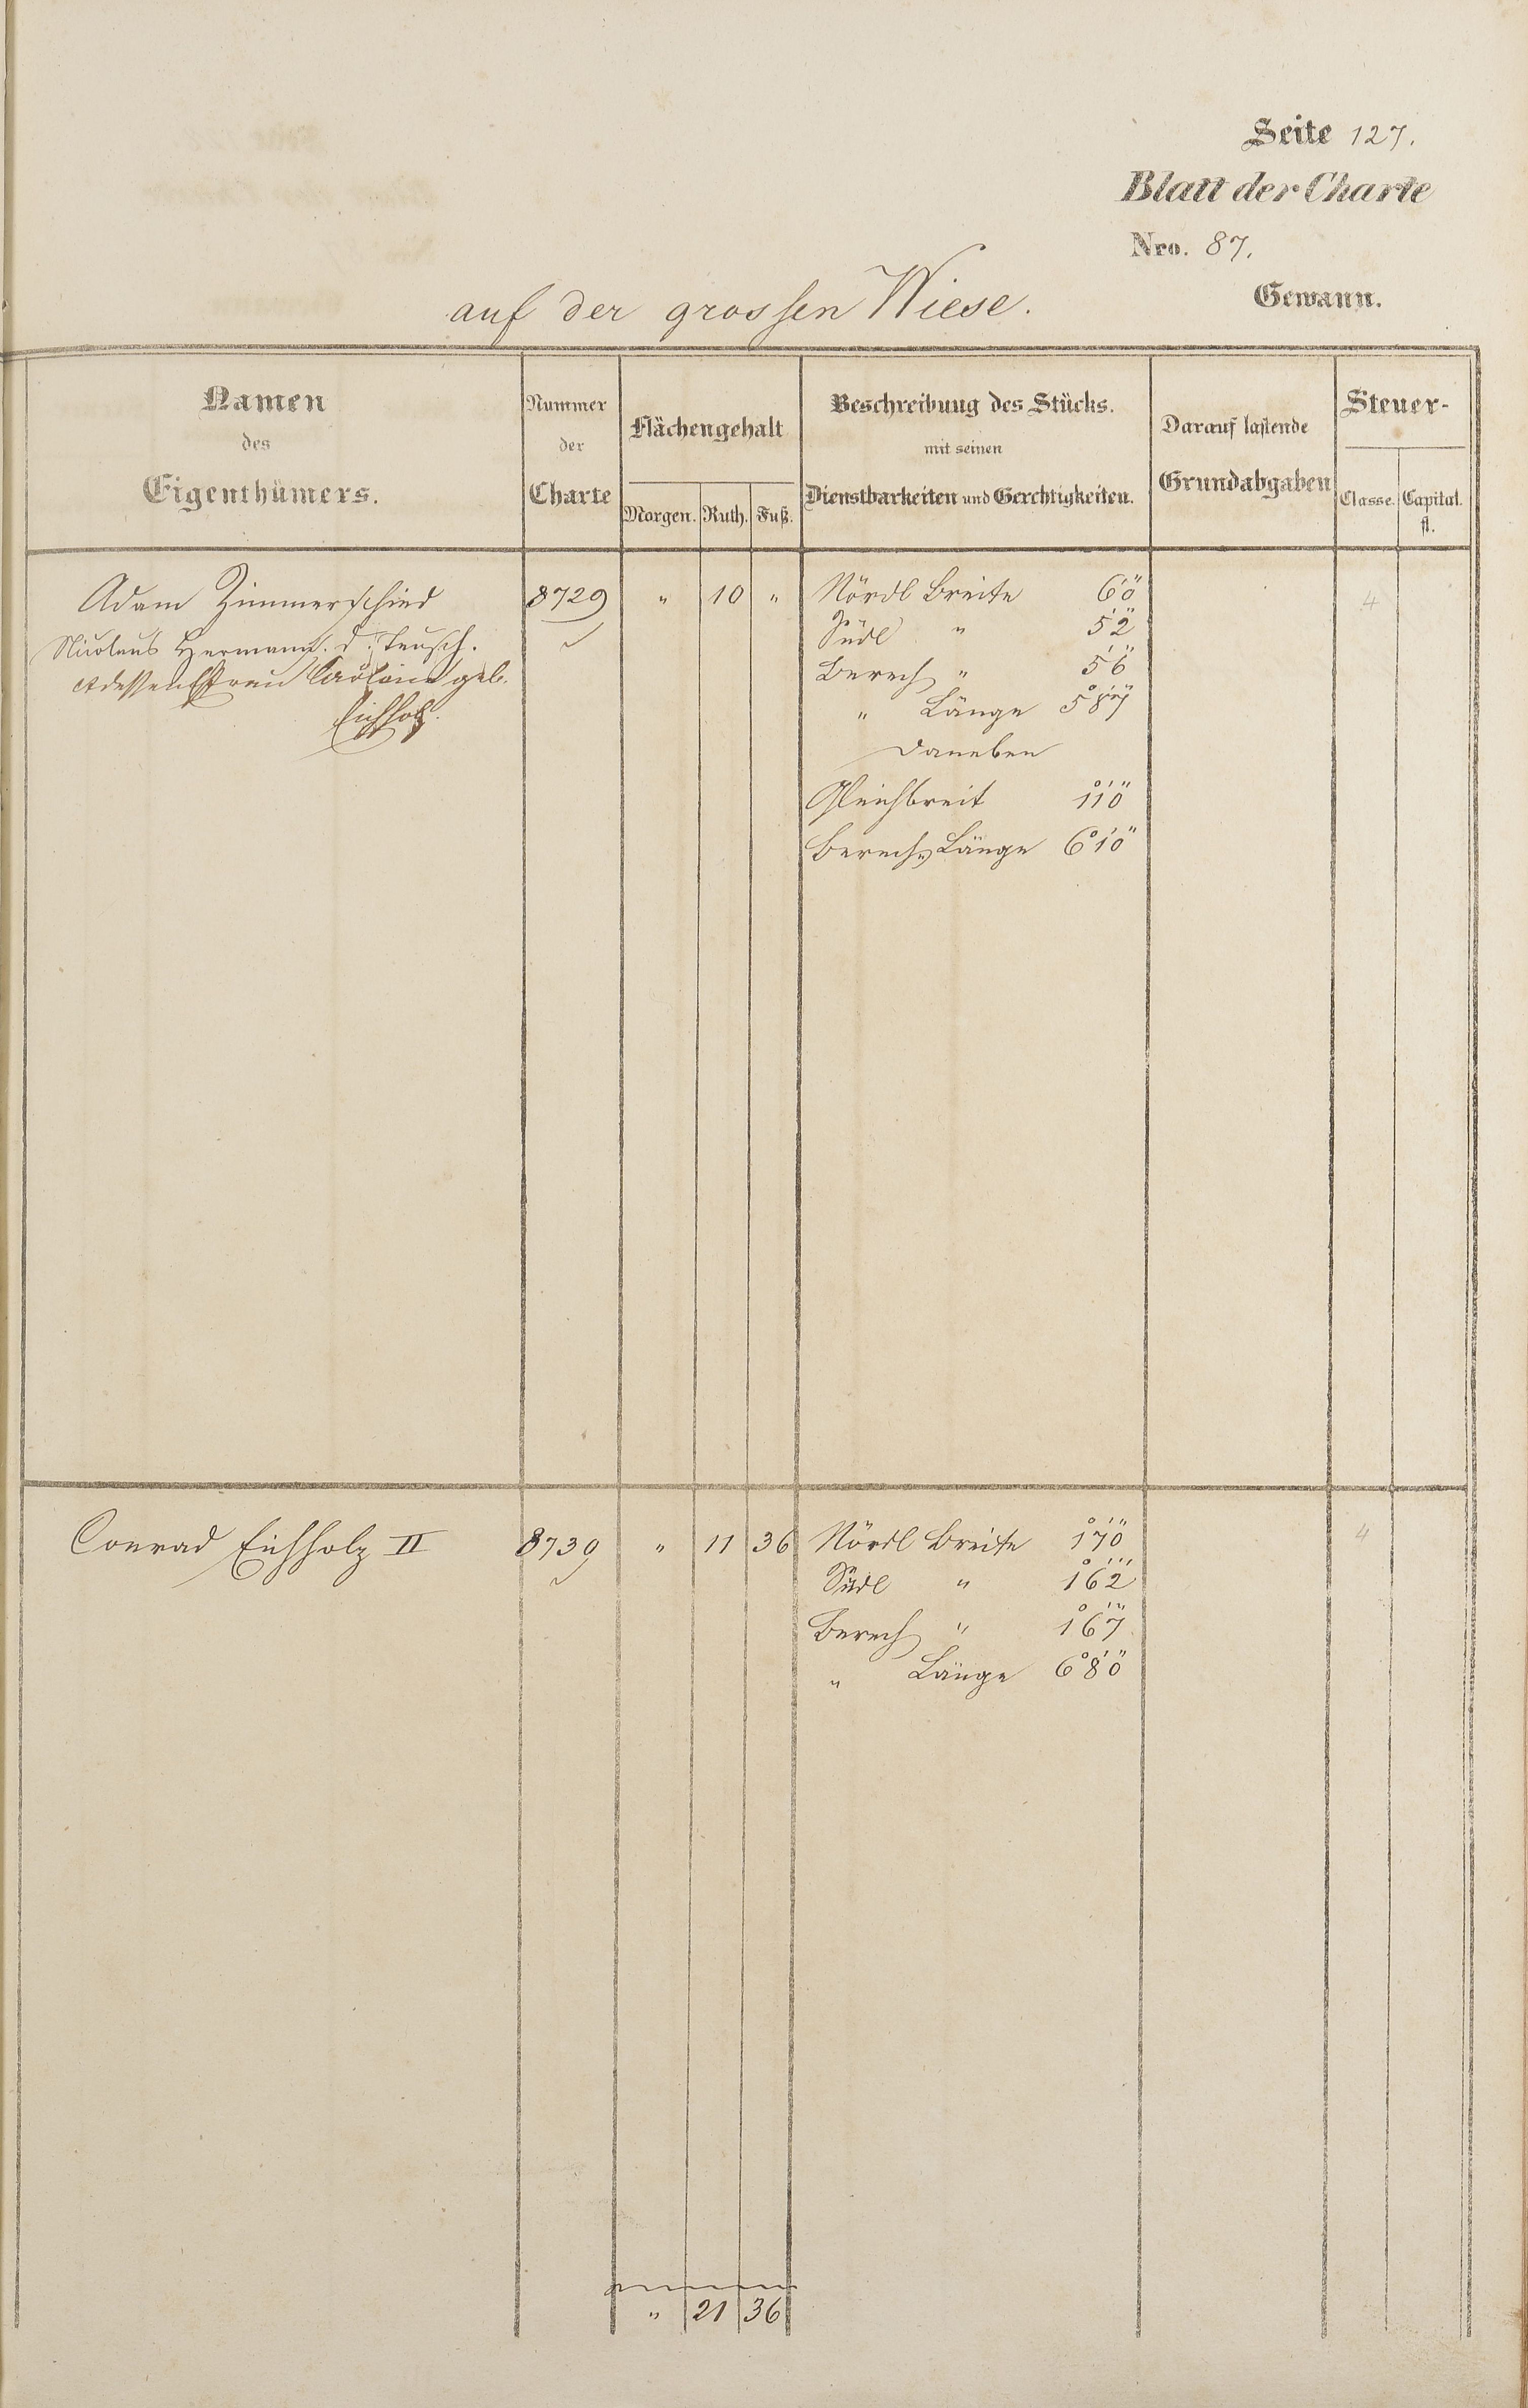 Seite 127.
Blatt der Charte
Nro. 87.
auf der grossen Wiese. Gewann.
Namen
des
Eigenthümers.
Nummer
der
Charte
Flächengehalt
Morgen. Ruth. Fuß.
Beschreibung des Stücks.
mit seinen
Dienstbarkeiten und Gerechtigkeiten.
Darauf lastende
Grundabgaben
Steuer-
Classe. Capital.
fl.
Adam Zimmerschied 8729 " 10 " Nördl Breite 6' 0" 4
Nicolaus Hermann. d. Teusch. Südl " 5' 2"
Ehefrau geb. Berech " 5' 6"
Eichholz. " Länge 5° 8' 7"
daneben
Gleichbreit 1° 1' 0"
Berech Länge 6° 1' 0"
Conrad Eichholz II 8730 " 11 36 Nördl Breite 1° 7' 0" 4
Südl " 1° 6' 2"
Berech " 1° 6' 7"
" Länge 6° 8' 0"
" 21 36